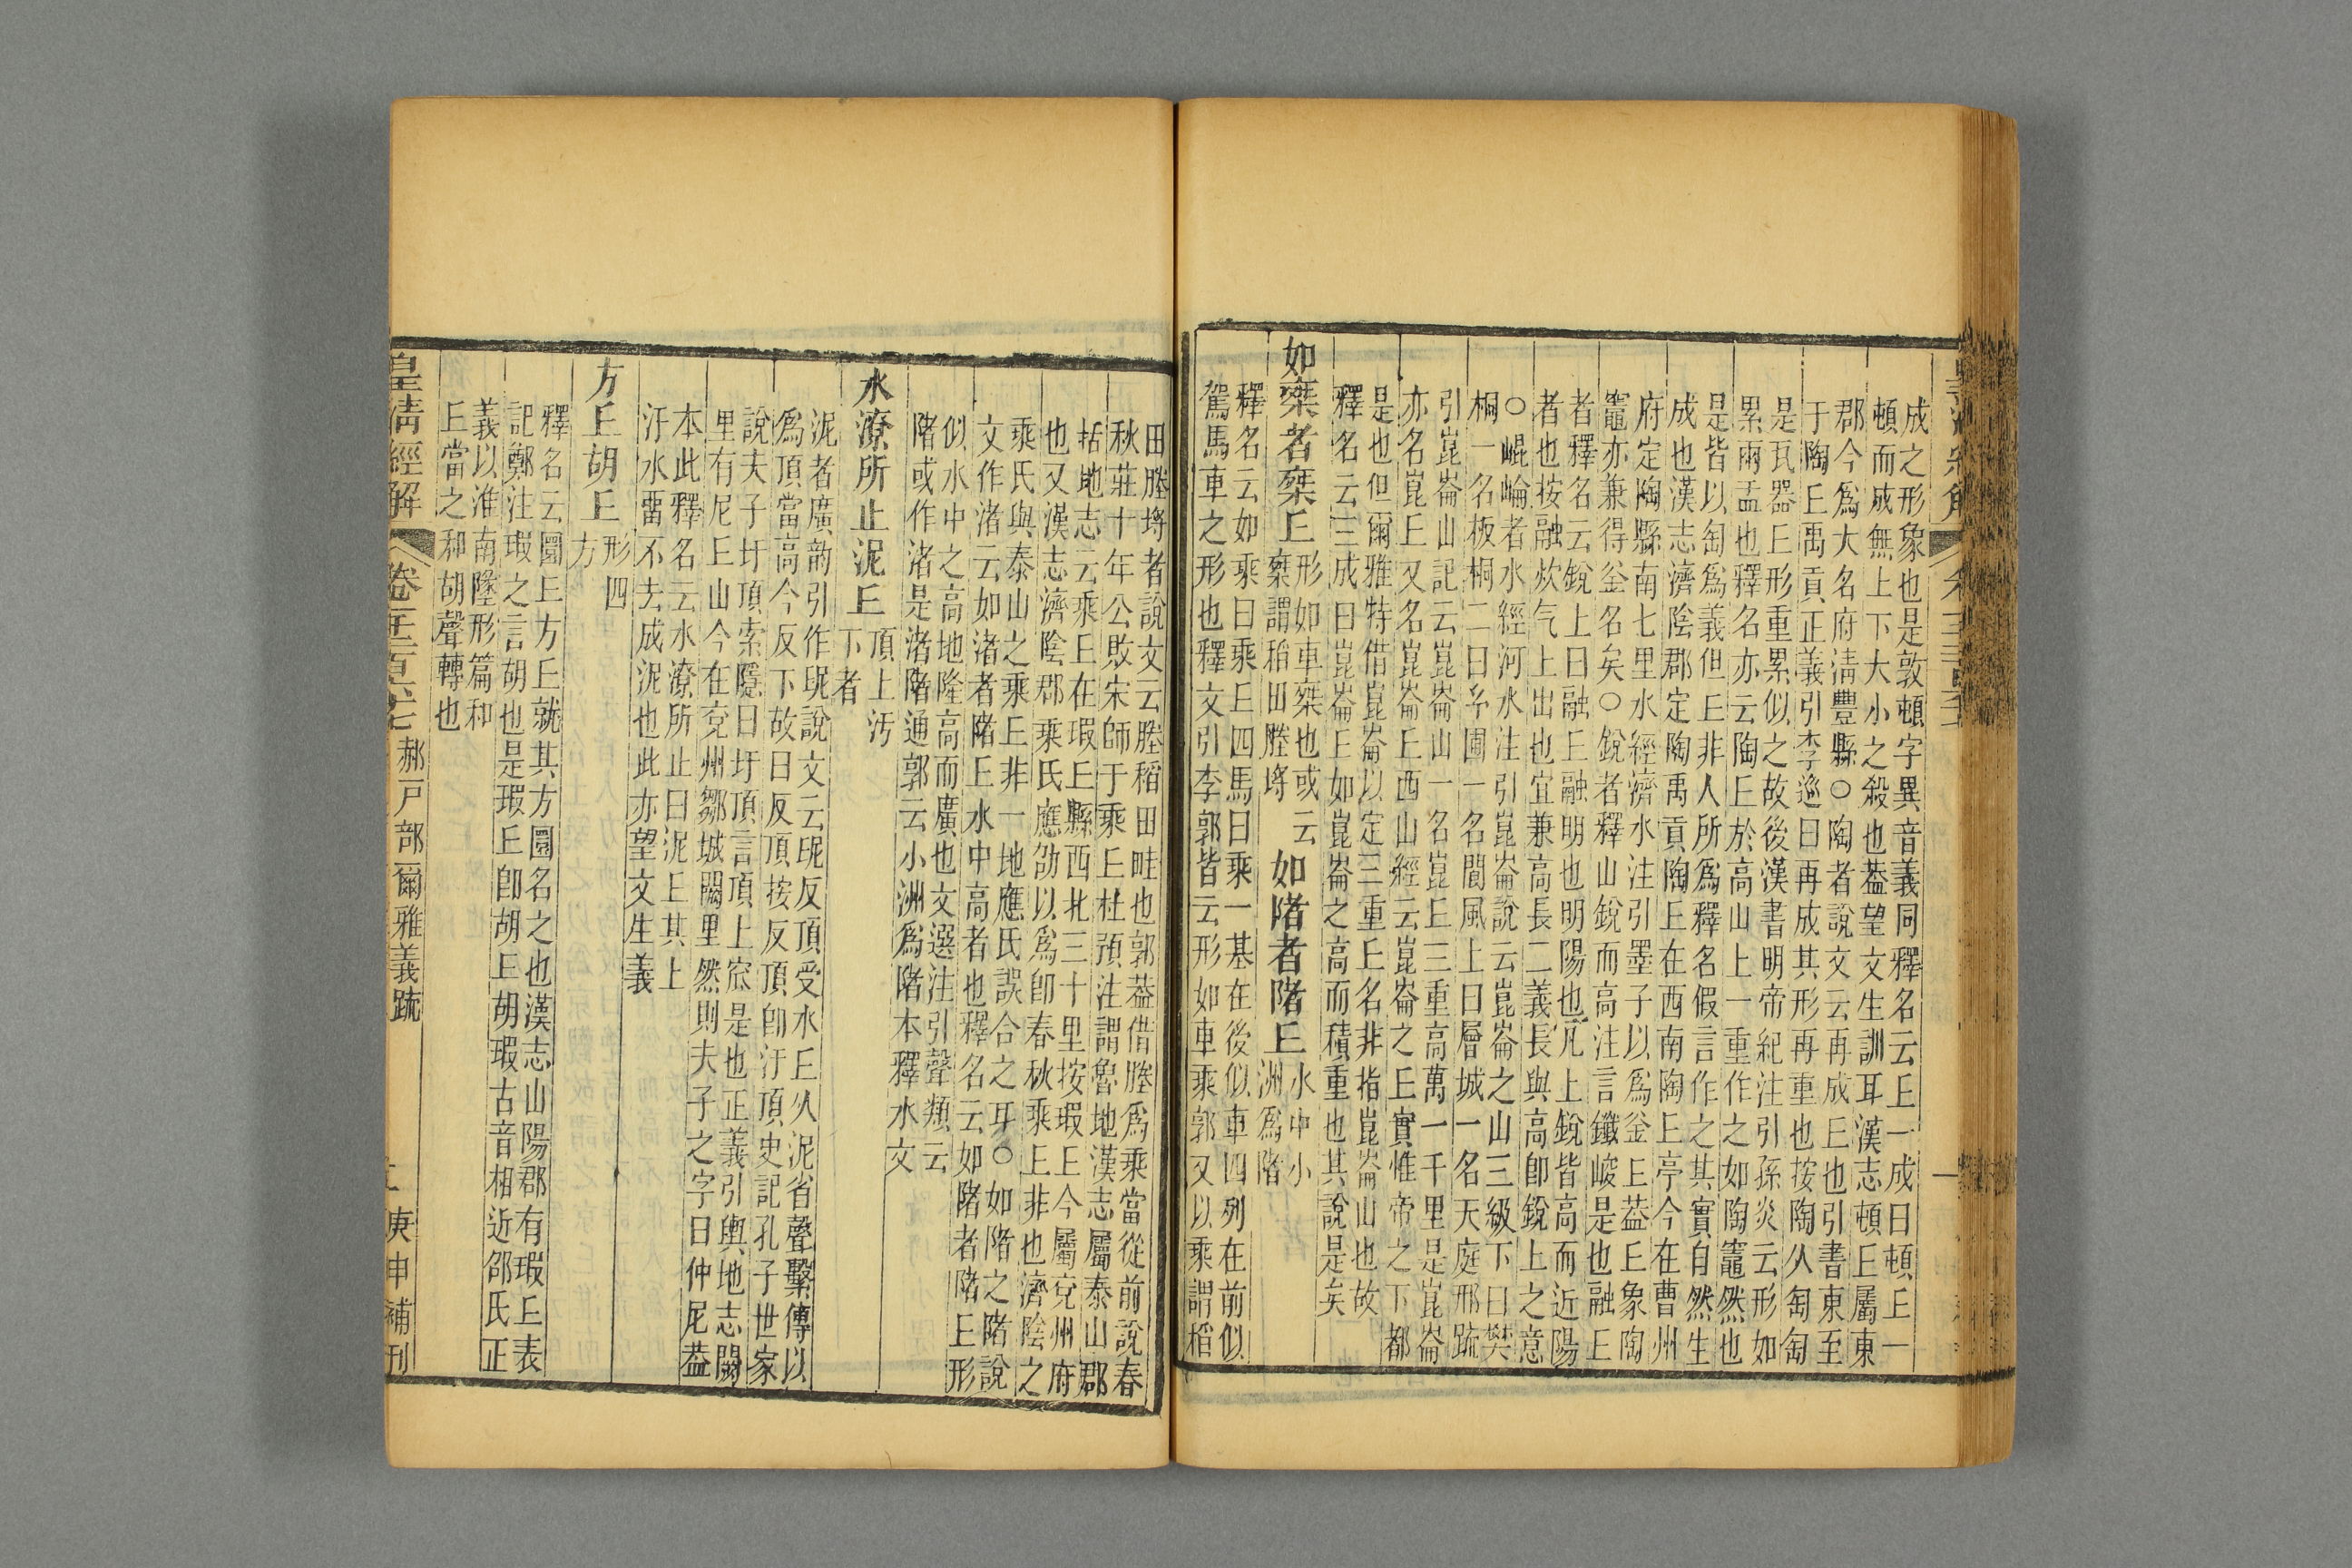 成之形象也是敦頓字異音義同釋名云丘一成曰頓丘一
頓而成無上下大小之殺也葢望文生訓耳漢志頓丘屬東
郡今爲大名府淸豐縣○陶者說文云再成丘也引書東至
于陶丘禹貢正義引李巡曰再成其形再重也按陶从匋匋
是瓦器丘形重累似之故後漢書明帝紀注引孫炎云形如
累兩盂也釋名亦云陶丘於高山上一重作之如陶竈然也
是皆以匋爲義但丘非人所爲釋名假言作之其實自然生
成也漢志濟陰郡定陶禹貢陶丘在西南陶丘亭今在曹州
府定陶縣南七里水經濟水注引墨子以爲釜丘葢丘象陶
竈亦兼得釜名矣○銳者釋山銳而高注言鑯峻是也融丘
者釋名云銳上曰融丘融明也明陽也凡上銳皆高而近陽
者也按融炊气上出也宜兼高長二義長與高卽銳上之意
○崐崘者水經河水注引崑崙說云崑崙之山三級下曰樊
桐一名板桐二曰糸圃一名閬風上曰層城一名天庭邢疏
引崑崙山記云崑崙山一名崑丘三重高萬一千里是崑崙
亦名崑丘又名崑崙丘西山經云崑崙之丘實惟帝之下都
是也但爾雅特借崑崙以定三重丘名非指崑崙山也故
釋名云三成曰崑崙丘如崑崙之高而積重也其說是矣
如椉者椉丘形如車椉也或云椉謂稻田塍埓如陼者陼丘水中小洲爲陼
釋名云如乘曰乘丘四馬曰乘一基在後似車四列在前似
駕馬車之形也釋文引李郭皆云形如車乘郭又以乘謂稻
田塍埓者說文云塍稻田畦也郭葢借塍爲乘當從前說春
秋莊十年公敗宋師于乘丘杜預注謂魯地漢志屬泰山郡
括地志云乘丘在瑕丘縣西北三十里按瑕丘今屬兗州府
也又漢志濟陰郡乘氏應劭以爲卽春秋乘丘非也濟陰之
乘氏與泰山之乘丘非一地應氏誤合之耳○如陼之陼說
文作渚云如渚者陼丘水中高者也釋名云如陼者陼丘形
似水中之高地隆高而廣也文選注引聲類云
陼或作渚是渚陼通郭云小洲爲陼本釋水文
水潦所止泥丘頂上汚下者
泥者廣韵引作𡰥說文云𡰥反頂受水丘从泥省聲繫傳以
爲頂當高今反下故曰反頂按反頂卽汙頂史記孔子世家
說夫子圩頂索隱曰圩頂言頂上窊是也正義引輿地志闕
里有尼丘山今在兗州鄒城闕里然則夫子之字曰仲尼葢
本此釋名云水潦所止曰泥丘其上
汙水畱不去成泥也此亦望文生義
方丘胡丘形四方
釋名云圜丘方丘就其方圜名之也漢志山陽郡有瑕丘表
記鄭注瑕之言胡也是瑕丘卽胡丘胡瑕古音相近邵氏正
義以淮南墬形篇和
丘當之和胡聲轉也
皇淸經解 卷千二百六十七 郝戶部爾雅義疏 庚申補刊